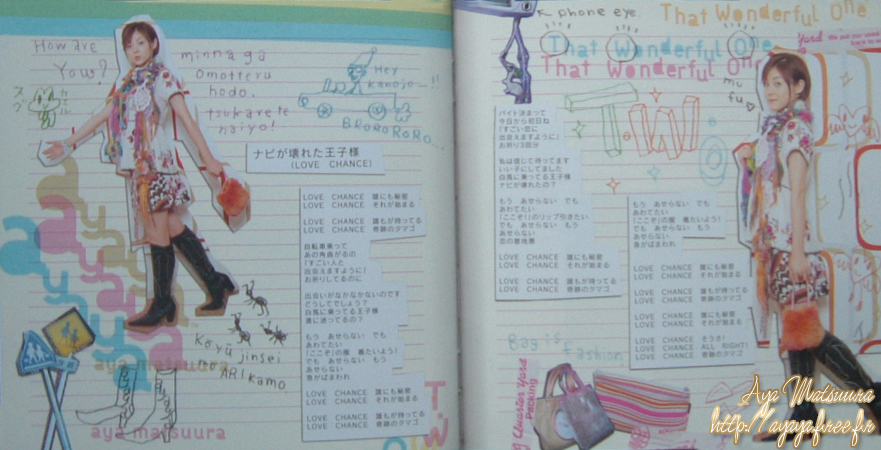 How are
You?
minna ga
omotteru
hodo.
tsukarete
naiyo!
Hey
Kanojo—!!
BRORORORO...
ナビが壊れた王子様
(LOVE CHANCE)
LOVE CHANCE 誰にも秘密
LOVE CHANCE それが始まる
LOVE CHANCE 誰もが持ってる
LOVE CHANCE 奇跡のタマゴ
自転車乗って
あの角曲がるの
「すごい人と
出会えますように」
お祈りしてるのに
出会いがなかなかないのです
どうしてでしょう?
白馬に乗ってる王子様
道に迷ってるの?
もう あせらない でも
あわてたい
「ここぞ!」の服 着たいよう!
でも あせらない もう
あせらない
息がはずまれ
LOVE CHANCE 誰にも秘密
LOVE CHANCE それが始まる
LOVE CHANCE 誰もが持ってる
LOVE CHANCE 奇跡のタマゴ
Koyū jinsei
mo ARI kamo
aya matsuura
aya matsuura
T.W
K phone eye.
That Wonderful One
That Wonderful One
That Wonderful One
mu
fu
T.W
バイト決まって
今日から初日ね
「すごい恋に
出会えますように」
お祈り3回分
私は信じて待ってます
いい子にしてました
白馬に乗ってる王子様
ナビが壊れたの?
もう あせらない でも
あわてたい
「ここぞ!」のリップ引きたい
でも あせらない もう
あせらない
恋の着地點
LOVE CHANCE 誰にも秘密
LOVE CHANCE それが始まる
LOVE CHANCE 誰もが持ってる
LOVE CHANCE 奇跡のタマゴ
もう あせらない でも
あわてたい
「ここぞ!」の服 着たいよう!
でも あせらない もう
あせらない
LOVE CHANCE 誰にも秘密
LOVE CHANCE それが始まる
LOVE CHANCE 誰もが持ってる
LOVE CHANCE 奇跡のタマゴ
LOVE CHANCE 誰にも秘密
LOVE CHANCE それが始まる
LOVE CHANCE そうさ!
LOVE CHANCE ALL RIGHT!
LOVE CHANCE 奇跡のタマゴ
Bag is
fashion
Quarter Yard
Packing
Aya Matsuura
http://ayaya.free.fr